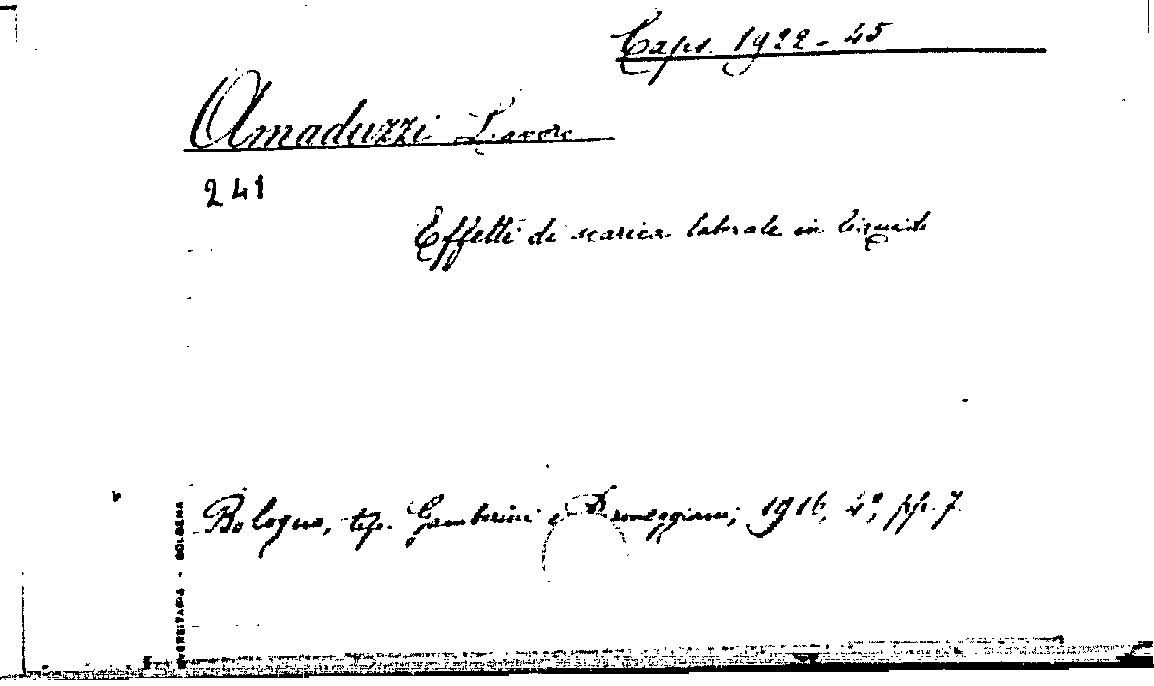 Caps. 1922-45
Amaduzzi Lavoro
241
Effetti di scarica laterale in liquidi
Bologna, tip. Gamberini e Parmeggiani, 1916, 4º, pp. 7.
BOLOGNA